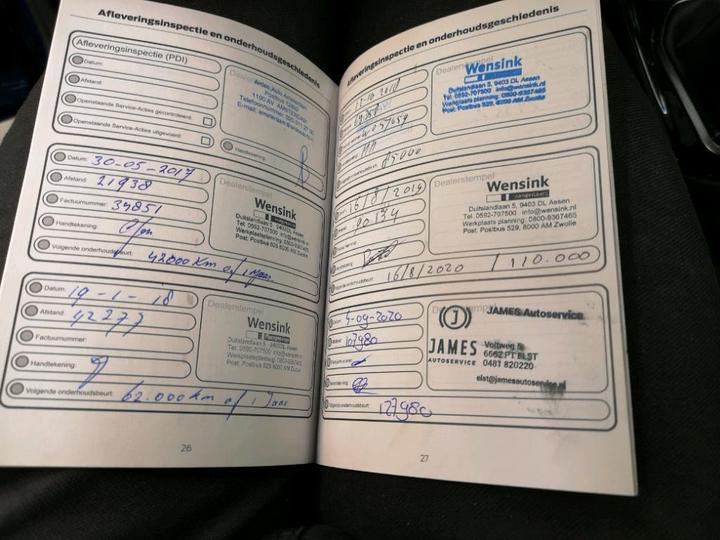 Afleveringsinspectie en onderhoudsgeschiedenis
Afleveringsinspectie (PDI)
Datum:
Afstand:
Openstaande Service-Acties gecontroleerd:
Openstaande Service-Acties uitgevoerd:
Dealerstempel
Postbus
1100 AV AMSTERDAM
Handtekening:
Datum: 30-05-2017
Afstand: 21938
Factuurnummer: 39851
Handtekening:
Volgende onderhoudsbeurt: 42000 Km of 1 Jaar
Dealerstempel
Wensink
Duitslandlaan 5, 9403 DL Assen
Tel. 0592-707500 info@wensink.nl
Werkplaatsplanning. 0800-9367465
Post: Postbus 529, 8000 AM Zwolle
Datum: 19-1-18
Afstand: 42277
Factuurnummer:
Handtekening:
Volgende onderhoudsbeurt: 62.000 km of 1 Jaar
Dealerstempel
Wensink
Duitslandlaan 5, 9403 DL Assen
Tel. 0592-707500 info@wensink.nl
Werkplaatsplanning. 0800-9367465
Post: Postbus 529, 8000 AM Zwolle
26
Afleveringsinspectie en onderhoudsgeschiedenis
Dealerstempel
Wensink
Duitslandlaan 5, 9403 DL Assen
Tel. 0592-707500 info@wensink.nl
Werkplaats planning. 0800-9367465
Post: Postbus 529, 8000 AM Zwolle
85000
16/8/2019
90134
Dealerstempel
Wensink
Duitslandlaan 5, 9403 DL Assen
Tel. 0592-707500 info@wensink.nl
Werkplaats planning. 0800-9367465
Post: Postbus 529, 8000 AM Zwolle
Volgende onderhoudsbeurt: 16/8/2020 / 110.000
-09-2020
107980
Volgende onderhoudsbeurt: 127980
JAMES
AUTOSERVICE
JAMES Autoservice
Voltweg
6662 PT ELST
0481 820220
elst@jamesautoservice.nl
27